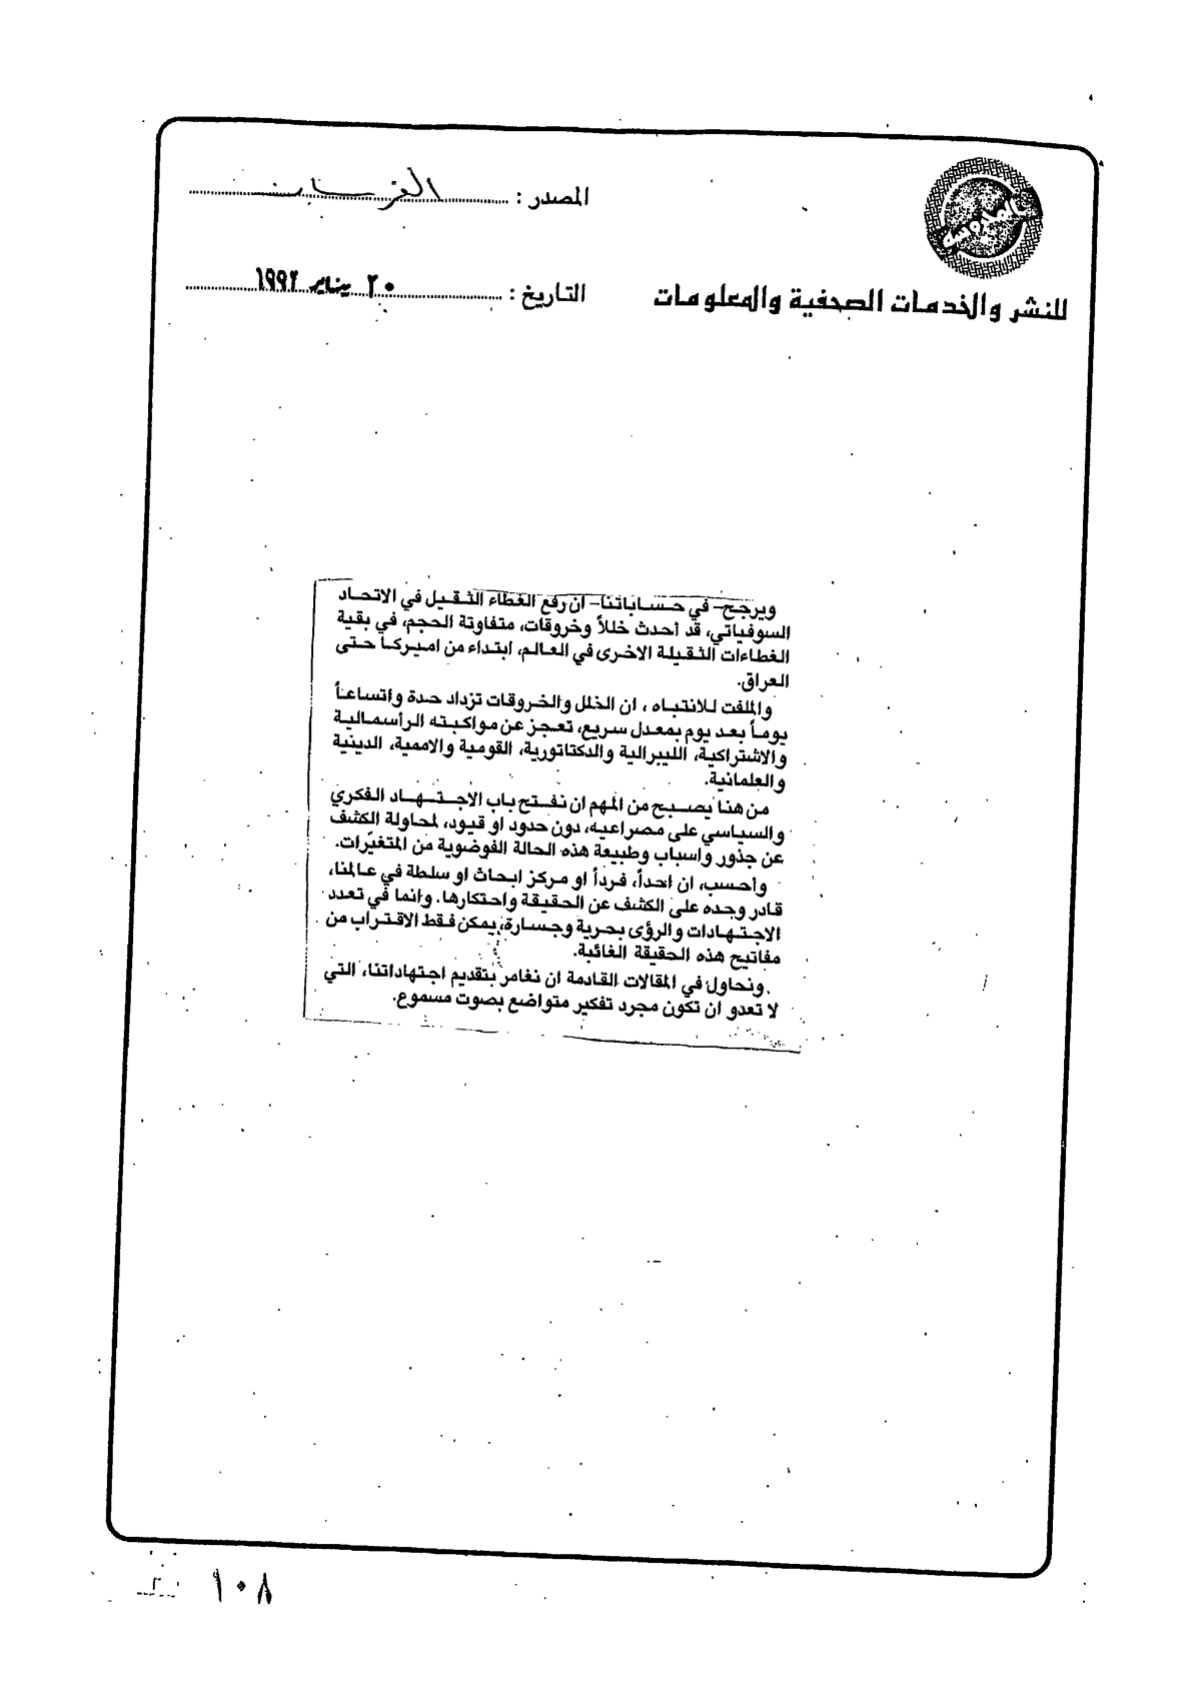 المصدر :
للنشر والخدمات الصحفية والمعلومات
التاريخ : ٢٠ يناير ١٩٩٢
ويرجح- في حساباتنا- ان رفع الغطاء الثقيل في الاتحاد
السوفياتي، قد أحدث خللاً وخروقات، متفاوتة الحجم، في بقية
الغطاءات الثقيلة الاخرى في العالم، ابتداء من اميركا حتى
العراق.
والملفت للانتباه ، ان الخلل والخروقات تزداد حدة واتساعاً
يوماً بعد يوم بمعدل سريع، تعجز عن مواكبته الرأسمالية
والاشتراكية، الليبرالية والدكتاتورية، القومية والاممية، الدينية
والعلمانية.
من هنا يصبح من المهم ان نفتح باب الاجتهاد الفكري
والسياسي على مصراعيه، دون حدود او قيود، لمحاولة الكشف
عن جذور واسباب وطبيعة هذه الحالة الفوضوية من المتغيّرات.
وأحسب، ان احداً، فرداً او مركز ابحاث او سلطة في عالمنا،
قادر وحده على الكشف عن الحقيقة واحتكارها. وانما في تعدد
الاجتهادات والرؤى بحرية وجسارة، يمكن فقط الاقتراب من
مفاتيح هذه الحقيقة الغائبة.
ونحاول في المقالات القادمة ان نغامر بتقديم اجتهاداتنا، التي
لا تعدو ان تكون مجرد تفكير متواضع بصوت مسموع.
١٠٨